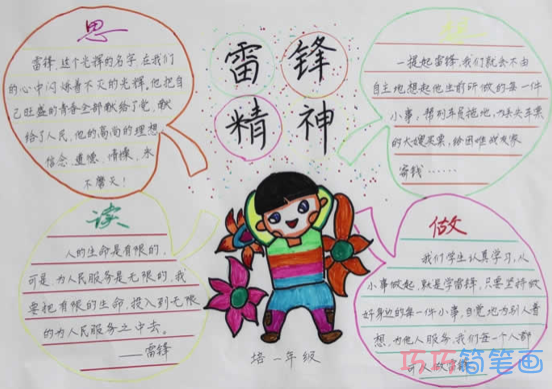 思
雷锋,这个光辉的名字,在我们
的心中闪烁着不灭的光辉。他把自
己旺盛的青春全部献给了党,献
给了人民,他的高尚的理想,
信念、道德、情操,永
不磨灭!
雷锋
精神
一提起雷锋,我们就会不由
自主地想起他生前所做的每一件
小事,帮列车员拖地,为丢失车票
的大嫂买票,给困难战友家
寄钱……
读
人的生命是有限的,
可是为人民服务是无限的,我
要把有限的生命,投入到无限
的为人民服务之中去。
——雷锋
做
我们学生认真学习,从
小事做起,就是学雷锋,只要坚持做
好身边的每一件小事,自觉地为别人着
想,为他人服务,我们每一个人都
可以做雷锋
培一年级
巧巧简笔画